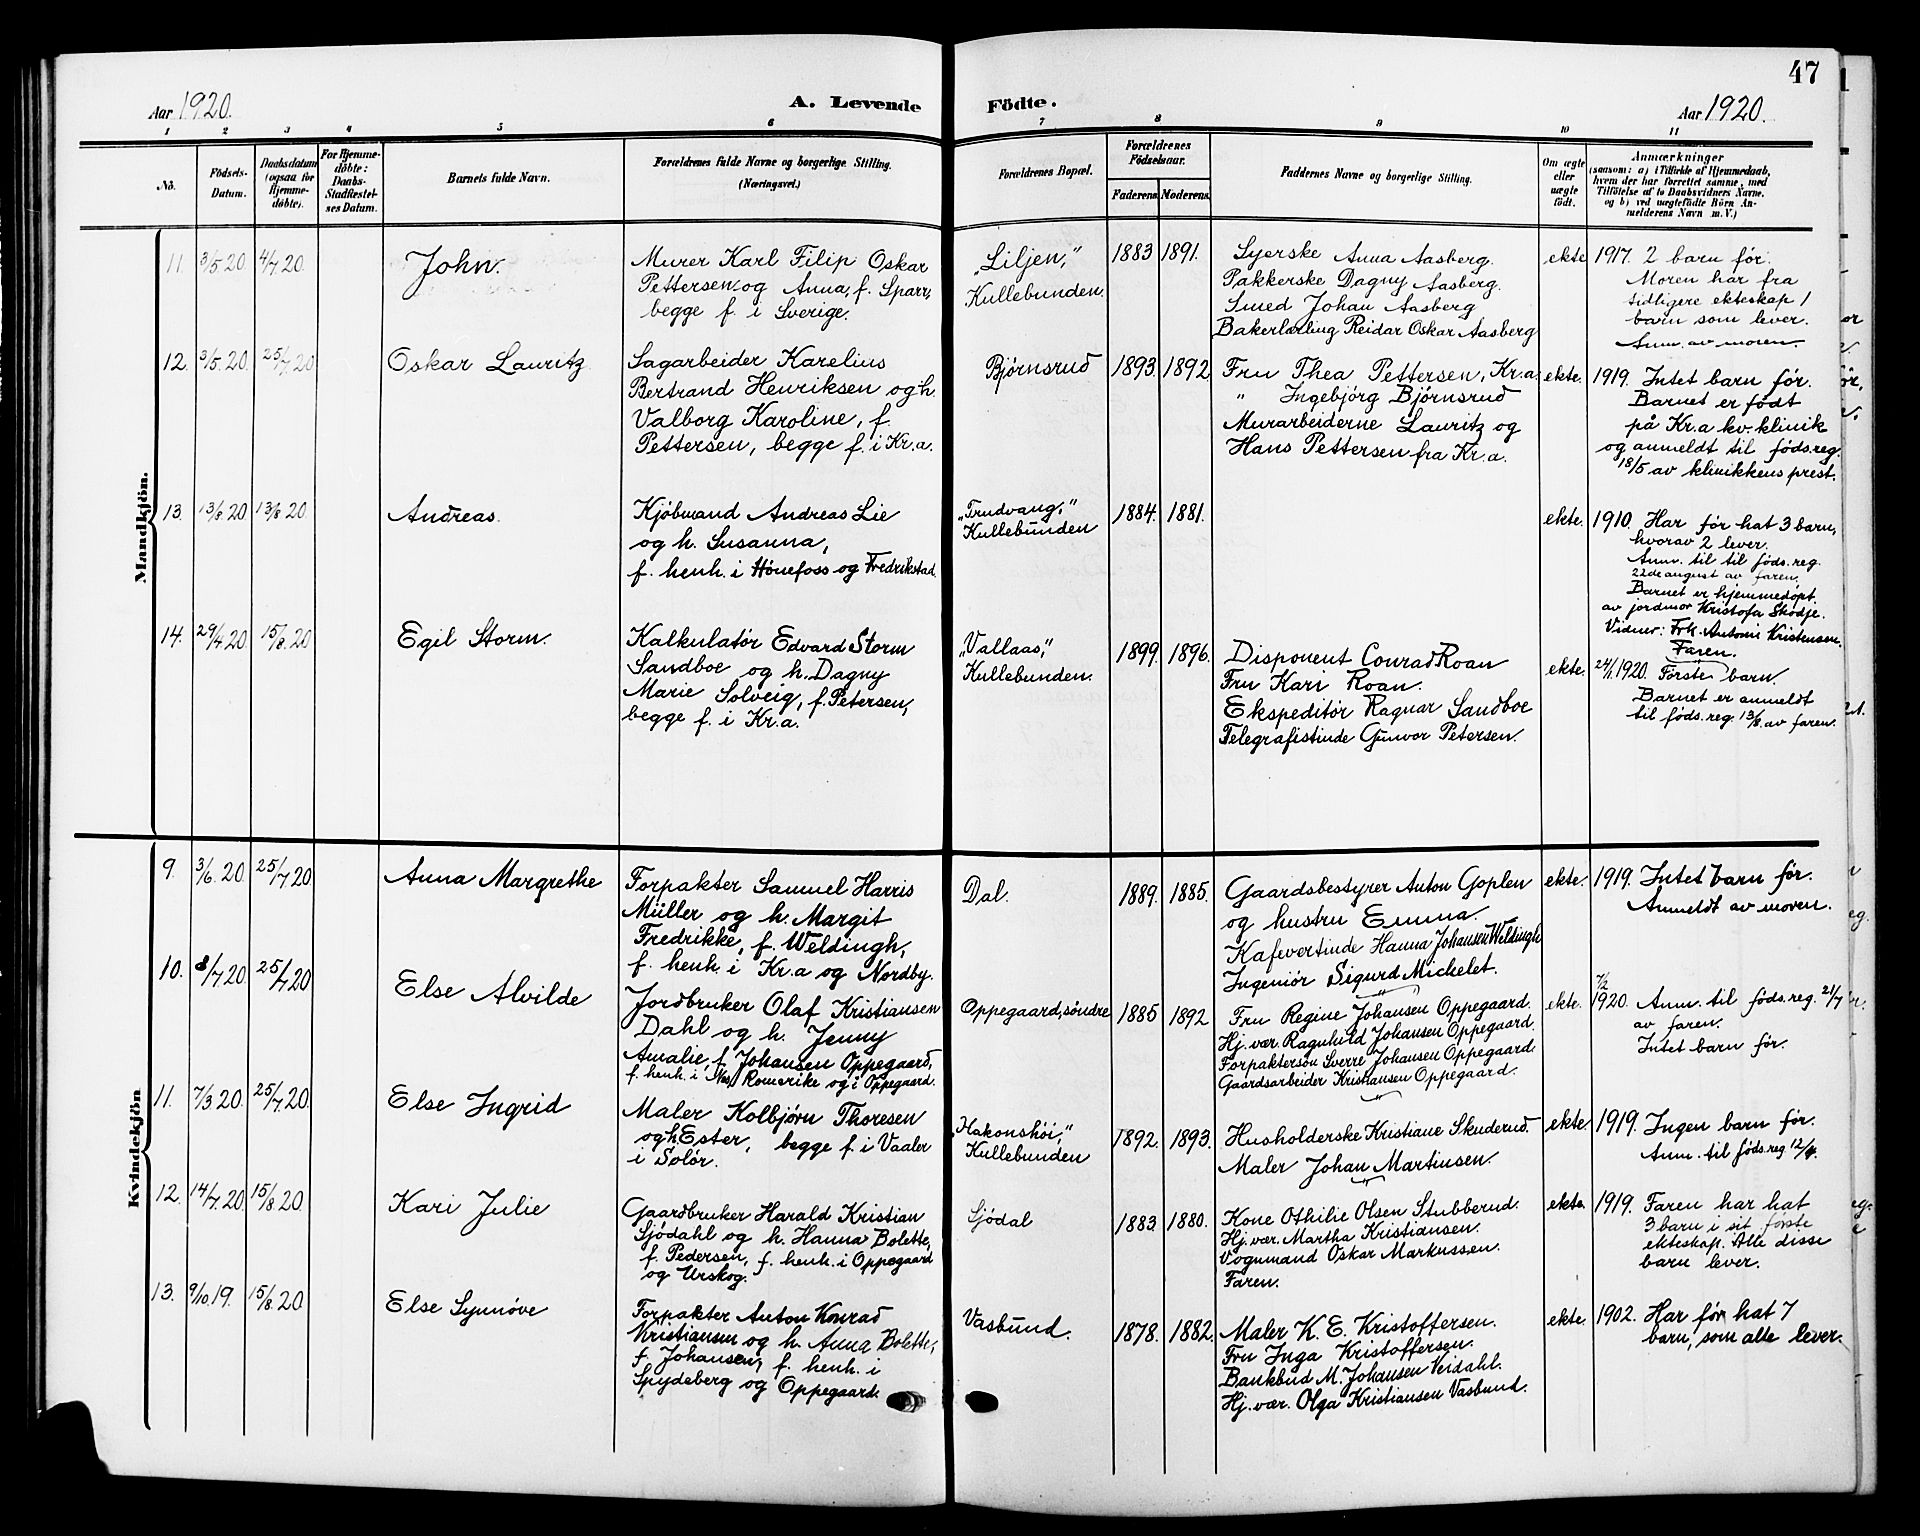 47
Aar 1920.
A. Levende Födte.
Aar 1920.
1 2 3 4 5 6 7 8 9 10 11
No.
Födsels-
Datum.
Daabsdatum
(ogsaa for
Hjemme-
döbte).
For Hjemme-
döbte:
Daabs-
Stadfæstel-
ses Datum.
Barnets fulde Navn.
Forældrenes fulde Navne og borgerlige Stilling.
(Næringsvei.)
Forældrenes Bopæl.
Forældrenes
Födselsaar.
Faderens. Moderens.
Faddernes Navne og borgerlige Stilling.
Om ægte
eller
uægte
födt.
Anmærkninger
(saasom: a) i Tilfælde af Hjemmedaab,
hvem der har forrettet samme, med
Tilföielse af to Daabsvidners Navne.
og b) ved uægtefödte Börn An-
melderens Navn m. V.)
Mandkjön.
11. 3/5 20 4/7 20. John.
Murer Karl Filip Oskar
Pettersen og Anna, f. Sparr,
begge f. i Sverige.
„Liljen,"
Kullebunden.
1883 1891.
Syerske Anna Aasberg.
Pakkerske Dagny Aasberg.
Smed Johan Aasberg
Bakerlærling Reidar Oskar Aasberg
ekte
1917. 2 barn før.
Moren har fra
tidligere ekteskap 1
barn som lever.
Anm. av moren.
12. 3/5. 20. 25/7 20 Oskar Lauritz
Sagarbeider Karelius
Bertrand Henriksen og h.
Valborg Karoline, f.
Pettersen, begge f. i Kr.a.
Bjørnsrud
1893. 1892
Fru Thea Pettersen, Kr.a.
" Ingebjörg Bjørnsrud
Murarbeiderne Lauritz og
Hans Pettersen fra Kr.a.
ekte.
1919. Intet barn før.
Barnet er født
på Kr.a kv.klinik
og anmeldt til føds.reg.
18/5 av klinikkens prest.
13. 13/8. 20. 13/8 20 Andreas.
Kjöbmand Andreas Lie
og h. Susanna,
f. henh. i Hönefoss og Fredrikstad.
„Trudvang,"
Kullebunden
1884. 1881.
ekte.
1910. Har før hat 3 barn,
hvorav 2 lever.
Anm. til til føds.reg.
22de august av faren.
Barnet er hjemmedøpt
av jordmor Kristofa Skodje.
Vidner: Frk. Antoni Kristensen.
Faren.
14. 29/4. 20 15/8. 20 Egil Storm.
Kalkulatør Edvard Storm
Sandboe og h. Dagny
Marie Solveig, f. Petersen,
begge f. i Kr.a.
„Vallaas,"
Kullebunden.
1899. 1896.
Disponent Conrad Roan
Fru Kari Roan.
Ekspeditör Ragnar Sandboe
Telegrafistinde Gunvor Petersen.
ekte.
24/1. 1920. Förste barn
Barnet er anmeldt
til føds.reg. 13/8 av faren.
Kvindekjön
9. 3/6. 20. 25/7 20 Anna Margrethe
Forpakter Samuel Harris
Müller og h. Margit
Fredrikke, f. Weldingh,
f. henh. i Kr.a og Nordby.
Dal.
1889. 1885.
Gaardsbestyrer Anton Goplen
og hustru Emma.
Kafevertinde Hanna Johansen Weldingh
Ingeniør Sigurd Michelet.
ekte.
1919. Intet barn før.
Anmeldt av moren.
10. 8/7 20 25/7 20 Else Alvilde
Jordbruker Olaf Kristiansen
Dahl og h. Jenny
Amalie, f. Johansen Oppegaard,
f. henh. i Nes, Romerike og i Oppegaard.
Oppegaard, søndre
1885 1892
Fru Regine Johansen Oppegaard.
Hj. vær. Ragnhild Johansen Oppegaard.
Forpaktersøn Sverre Johansen Oppegaard.
Gaardsarbeider Kristiansen Oppegaard.
ekte.
7/2
1920. Anm. til føds.reg. 21/7
av faren.
Intet barn før.
11. 7/3. 20. 25/7. 20. Else Ingrid
Maler Kolbjørn Thoresen
og h Ester, begge f. i Vaaler
i Solör.
„Hakonshöi,"
Kullebunden
1892. 1893.
Husholderske Kristiane Skuderud.
Maler Johan Martinsen.
ekte.
1919. Ingen barn før.
Anm. til føds.reg. 12/4.
12. 14/7. 20. 15/8 20 Kari Julie
Gaardbruker Harald Kristian
Sjödahl og h. Hanna Bolette,
f. Pedersen, f. henh. i Oppegaard
og Urskog.
Sjödal
1883. 1880.
Kone Othilie Olsen Stubberud.
Hj. vær. Martha Kristiansen.
Vognmand Oskar Markussen.
Faren.
ekte.
1919. Faren har hat
3 barn i sit første
ekteskap. Alle disse
barn lever.
13. 9/10. 19. 15/8. 20 Else Synnöve
Forpakter Anton Konrad
Kristiansen og h. Anna Bolette,
f. Johansen, f. henh. i
Spydeberg og Oppegaard.
Vasbund.
1878. 1882.
Maler K. E. Kristoffersen.
Fru Inga Kristoffersen.
Bankbud M. Johansen Veidahl.
Hj. vær. Olga Kristiansen Vasbund.
ekte.
1902. Har før hat 7
barn, som alle lever.